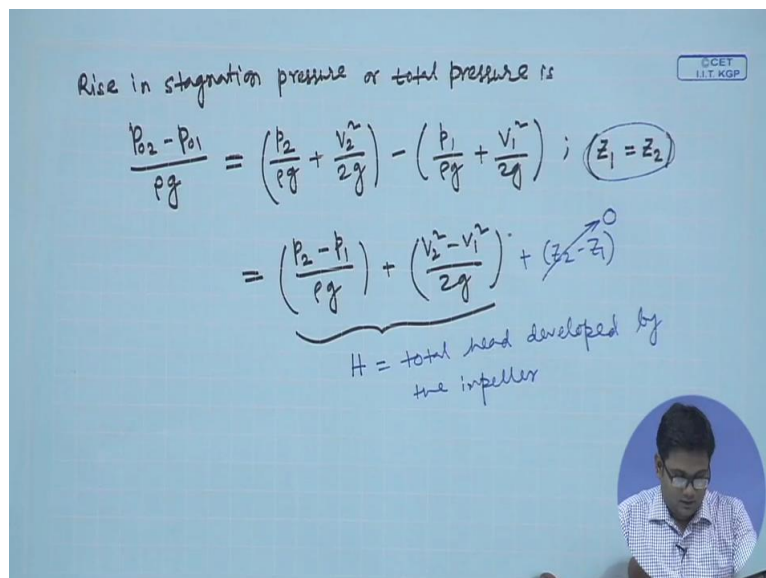 ©CET
I.I.T. KGP
Rise in stagnation pressure or total pressure is
(p₀₂ - p₀₁)/ρg = (p₂/ρg + V₂²/2g) - (p₁/ρg + V₁²/2g) ; (z₁ = z₂)
= (p₂ - p₁)/ρg + (V₂² - V₁²)/2g + (z₂ - z₁) 0
H = total head developed by
the impeller